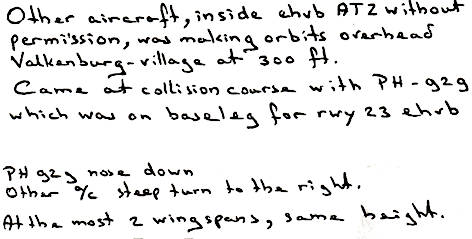 Other aircraft, inside ehvb ATZ without
permission, was making orbits overhead
Valkenburg-village at 300 ft.
Came at collision course with PH-929
which was on baseleg for rwy 23 ehvb
PH 929 nose down
Other a/c steep turn to the right.
At the most 2 wingspans, same height.